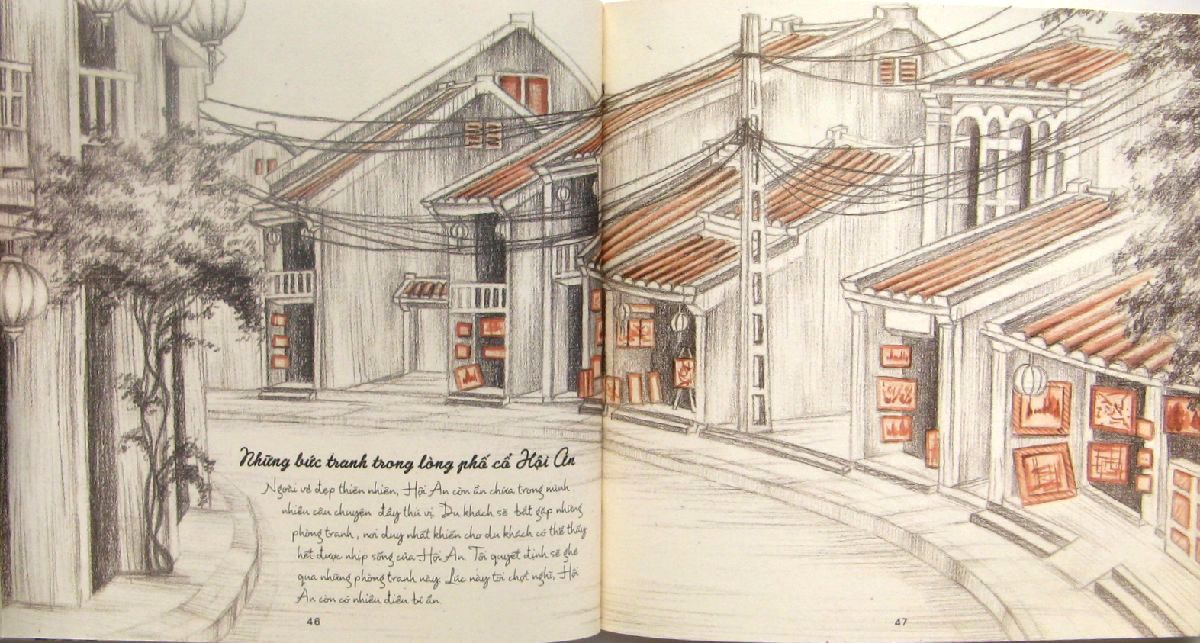 Những bức tranh trong lòng phố cổ Hội An
Ngoài vẻ đẹp thiên nhiên, Hội An còn ẩn chứa trong mình
nhiều câu chuyện đầy thú vị. Du khách sẽ bắt gặp những
phòng tranh, nơi duy nhất khiến cho du khách có thể thấy
hết được nhịp sống của Hội An. Tôi quyết định sẽ ghé
qua những phòng tranh này. Lúc này tôi chợt nghĩ, Hội
An còn có nhiều điều bí ẩn.
46
47